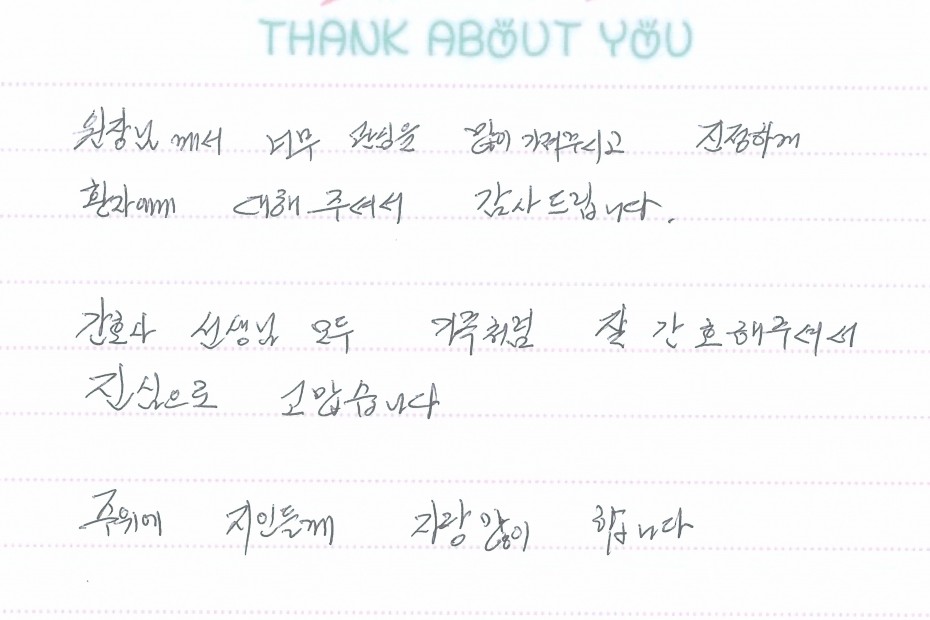 THANK ABOUT YOU
원장님께서 너무 관심을 많이 가져주시고 친절하게
환자에게 대해 주셔서 감사드립니다.
간호사 선생님 모두 가족처럼 잘 간호해주셔서
진심으로 고맙습니다
주위에 지인들께 자랑 많이 합니다